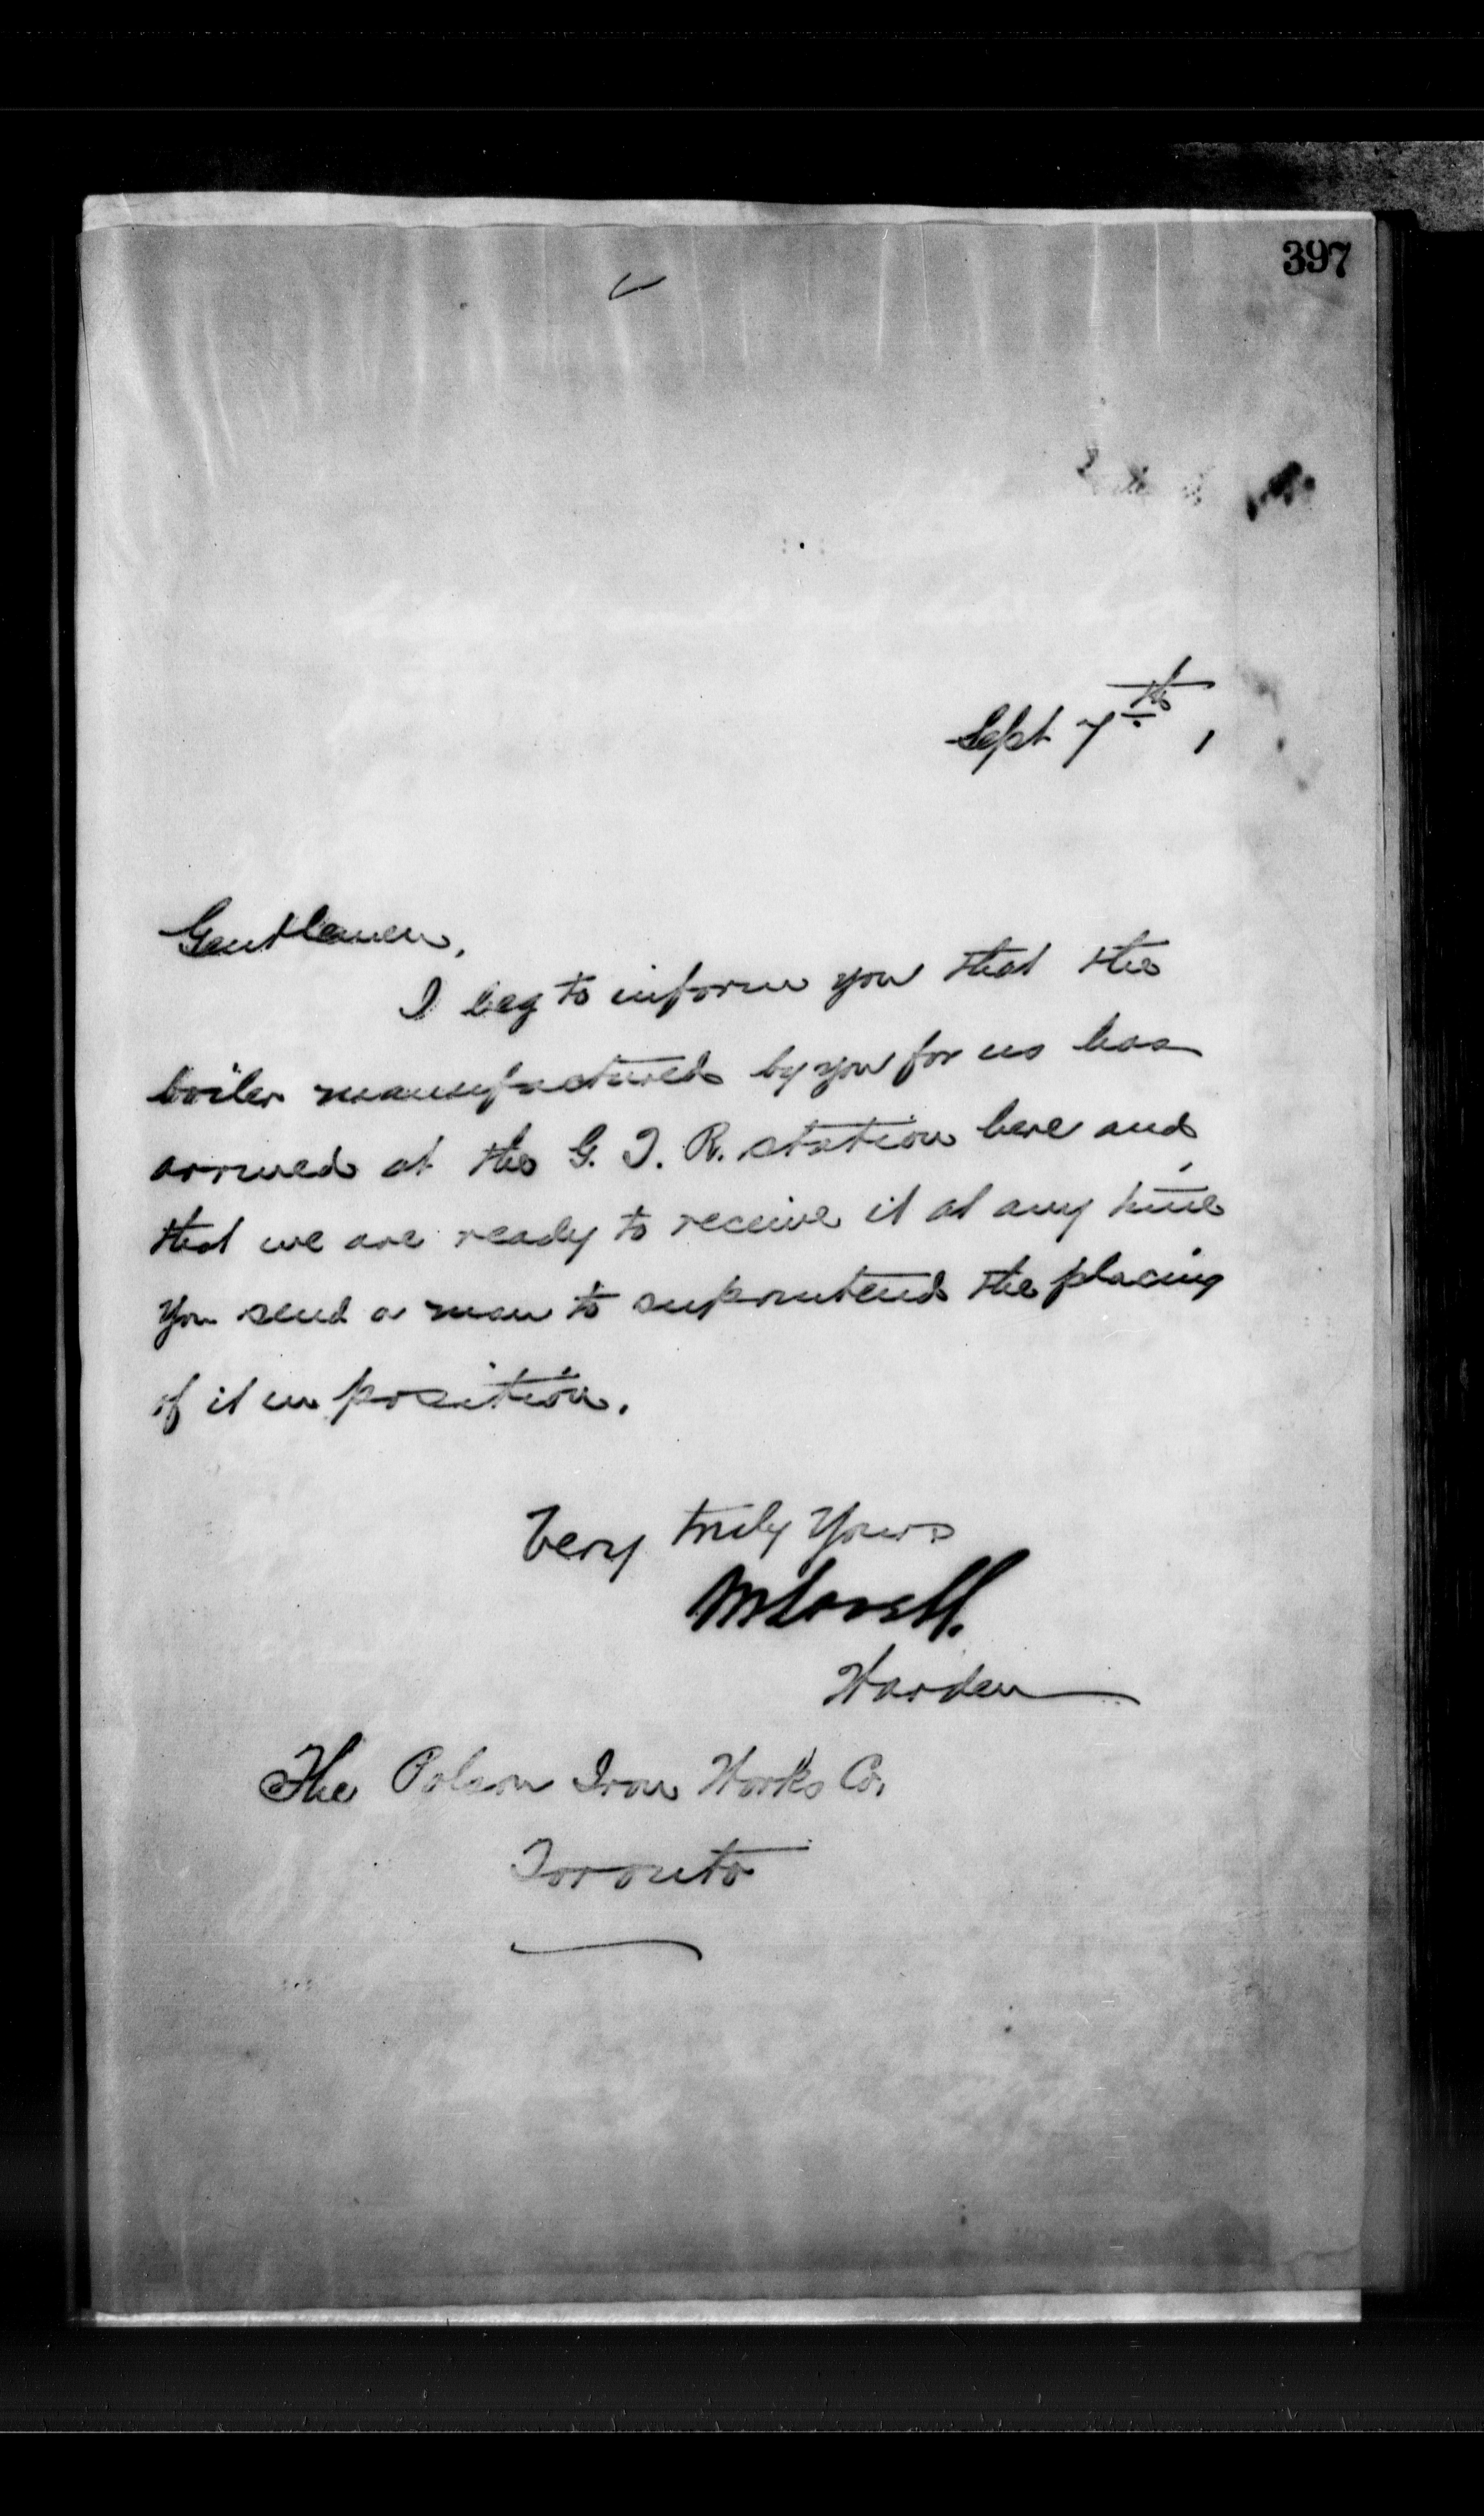 397
Sept 7th, 1
Gentlemen,
I beg to inform you that the
boiler manufactured by you for us has
arrived at the G. T. R. station here and
that we are ready to receive it at any time
you send a man to superintend the placing
of it in position.
Very truly Yours
M Lavell.
Warden
The Polson Iron Works Co.
Toronto